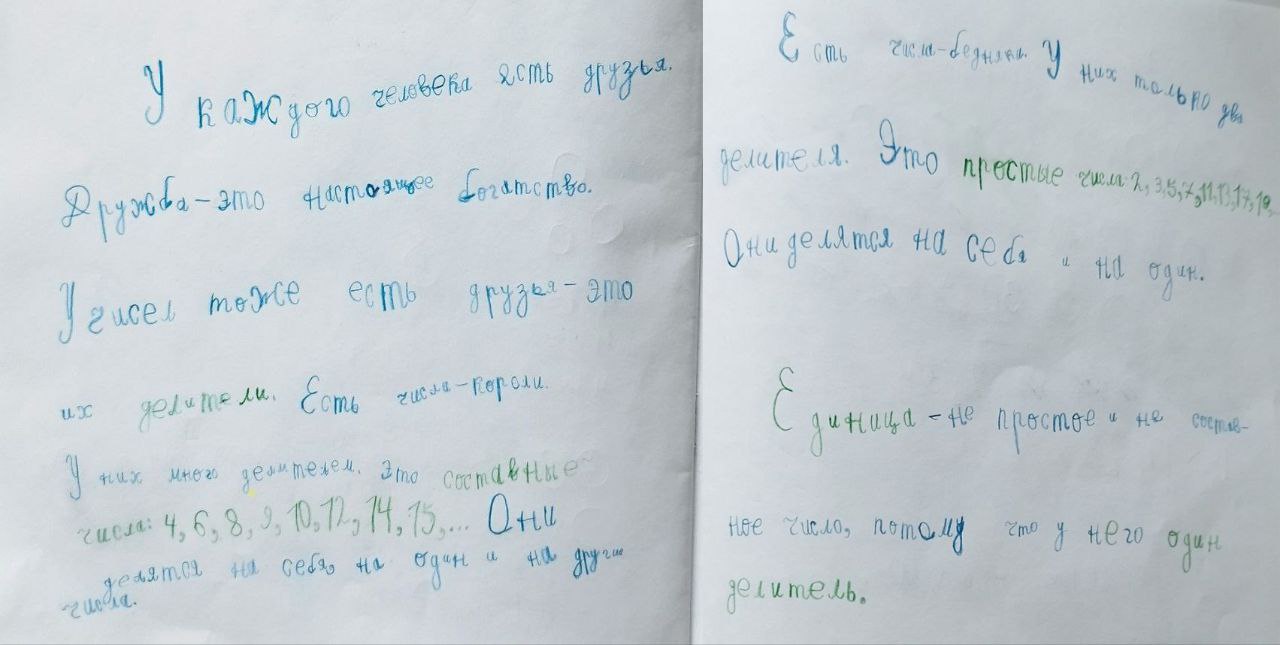 У каждого человека есть друзья.
Дружба - это настоящее богатство.
У чисел тоже есть друзья - это
их делители. Есть числа-короли.
У них много делителем. Это составные
числа: 4, 6, 8, 9, 10, 12, 14, 15,... Они
делятся на себя, на один и на другие
числа.
Есть числа-бедняки. У них только два
делителя. Это простые числа 2, 3, 5, 7, 11, 13, 17, 19,
Они делятся на себя и на один.
Единица - не простое и не состав-
ное число, потому что у него один
делитель.